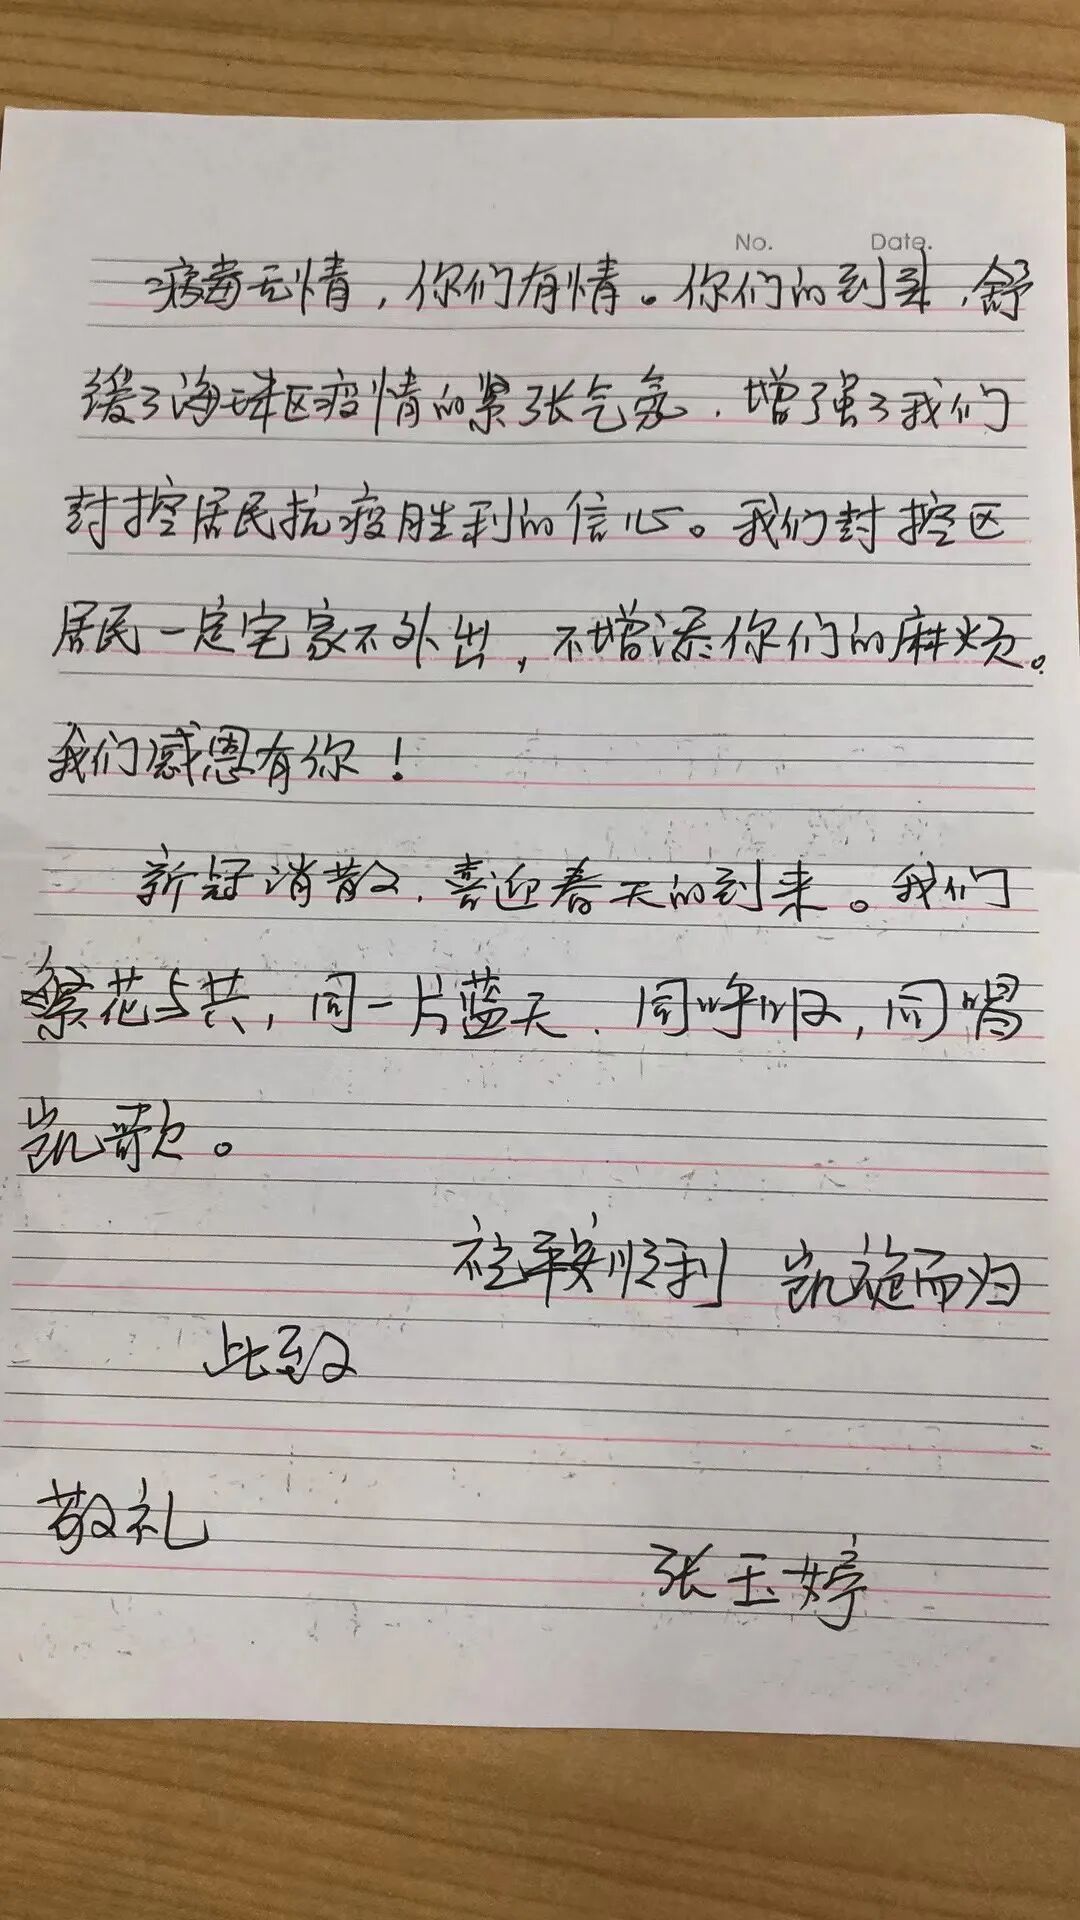 No. Date.
病毒无情，你们有情。你们的到来，舒
缓了海珠区疫情的紧张气氛，增强了我们
封控居民抗疫胜利的信心。我们封控区
居民一定宅家不外出，不增添你们的麻烦。
我们感恩有你！
新冠消散，喜迎春天的到来。我们
繁花与共，同一片蓝天，同呼吸，同唱
凯歌。
祝平安顺利 凯旋而归
此致
敬礼
张玉婷